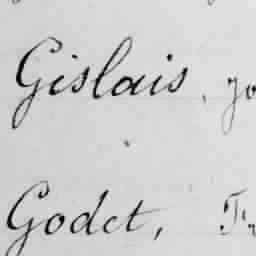 Gislais, 
Godet,